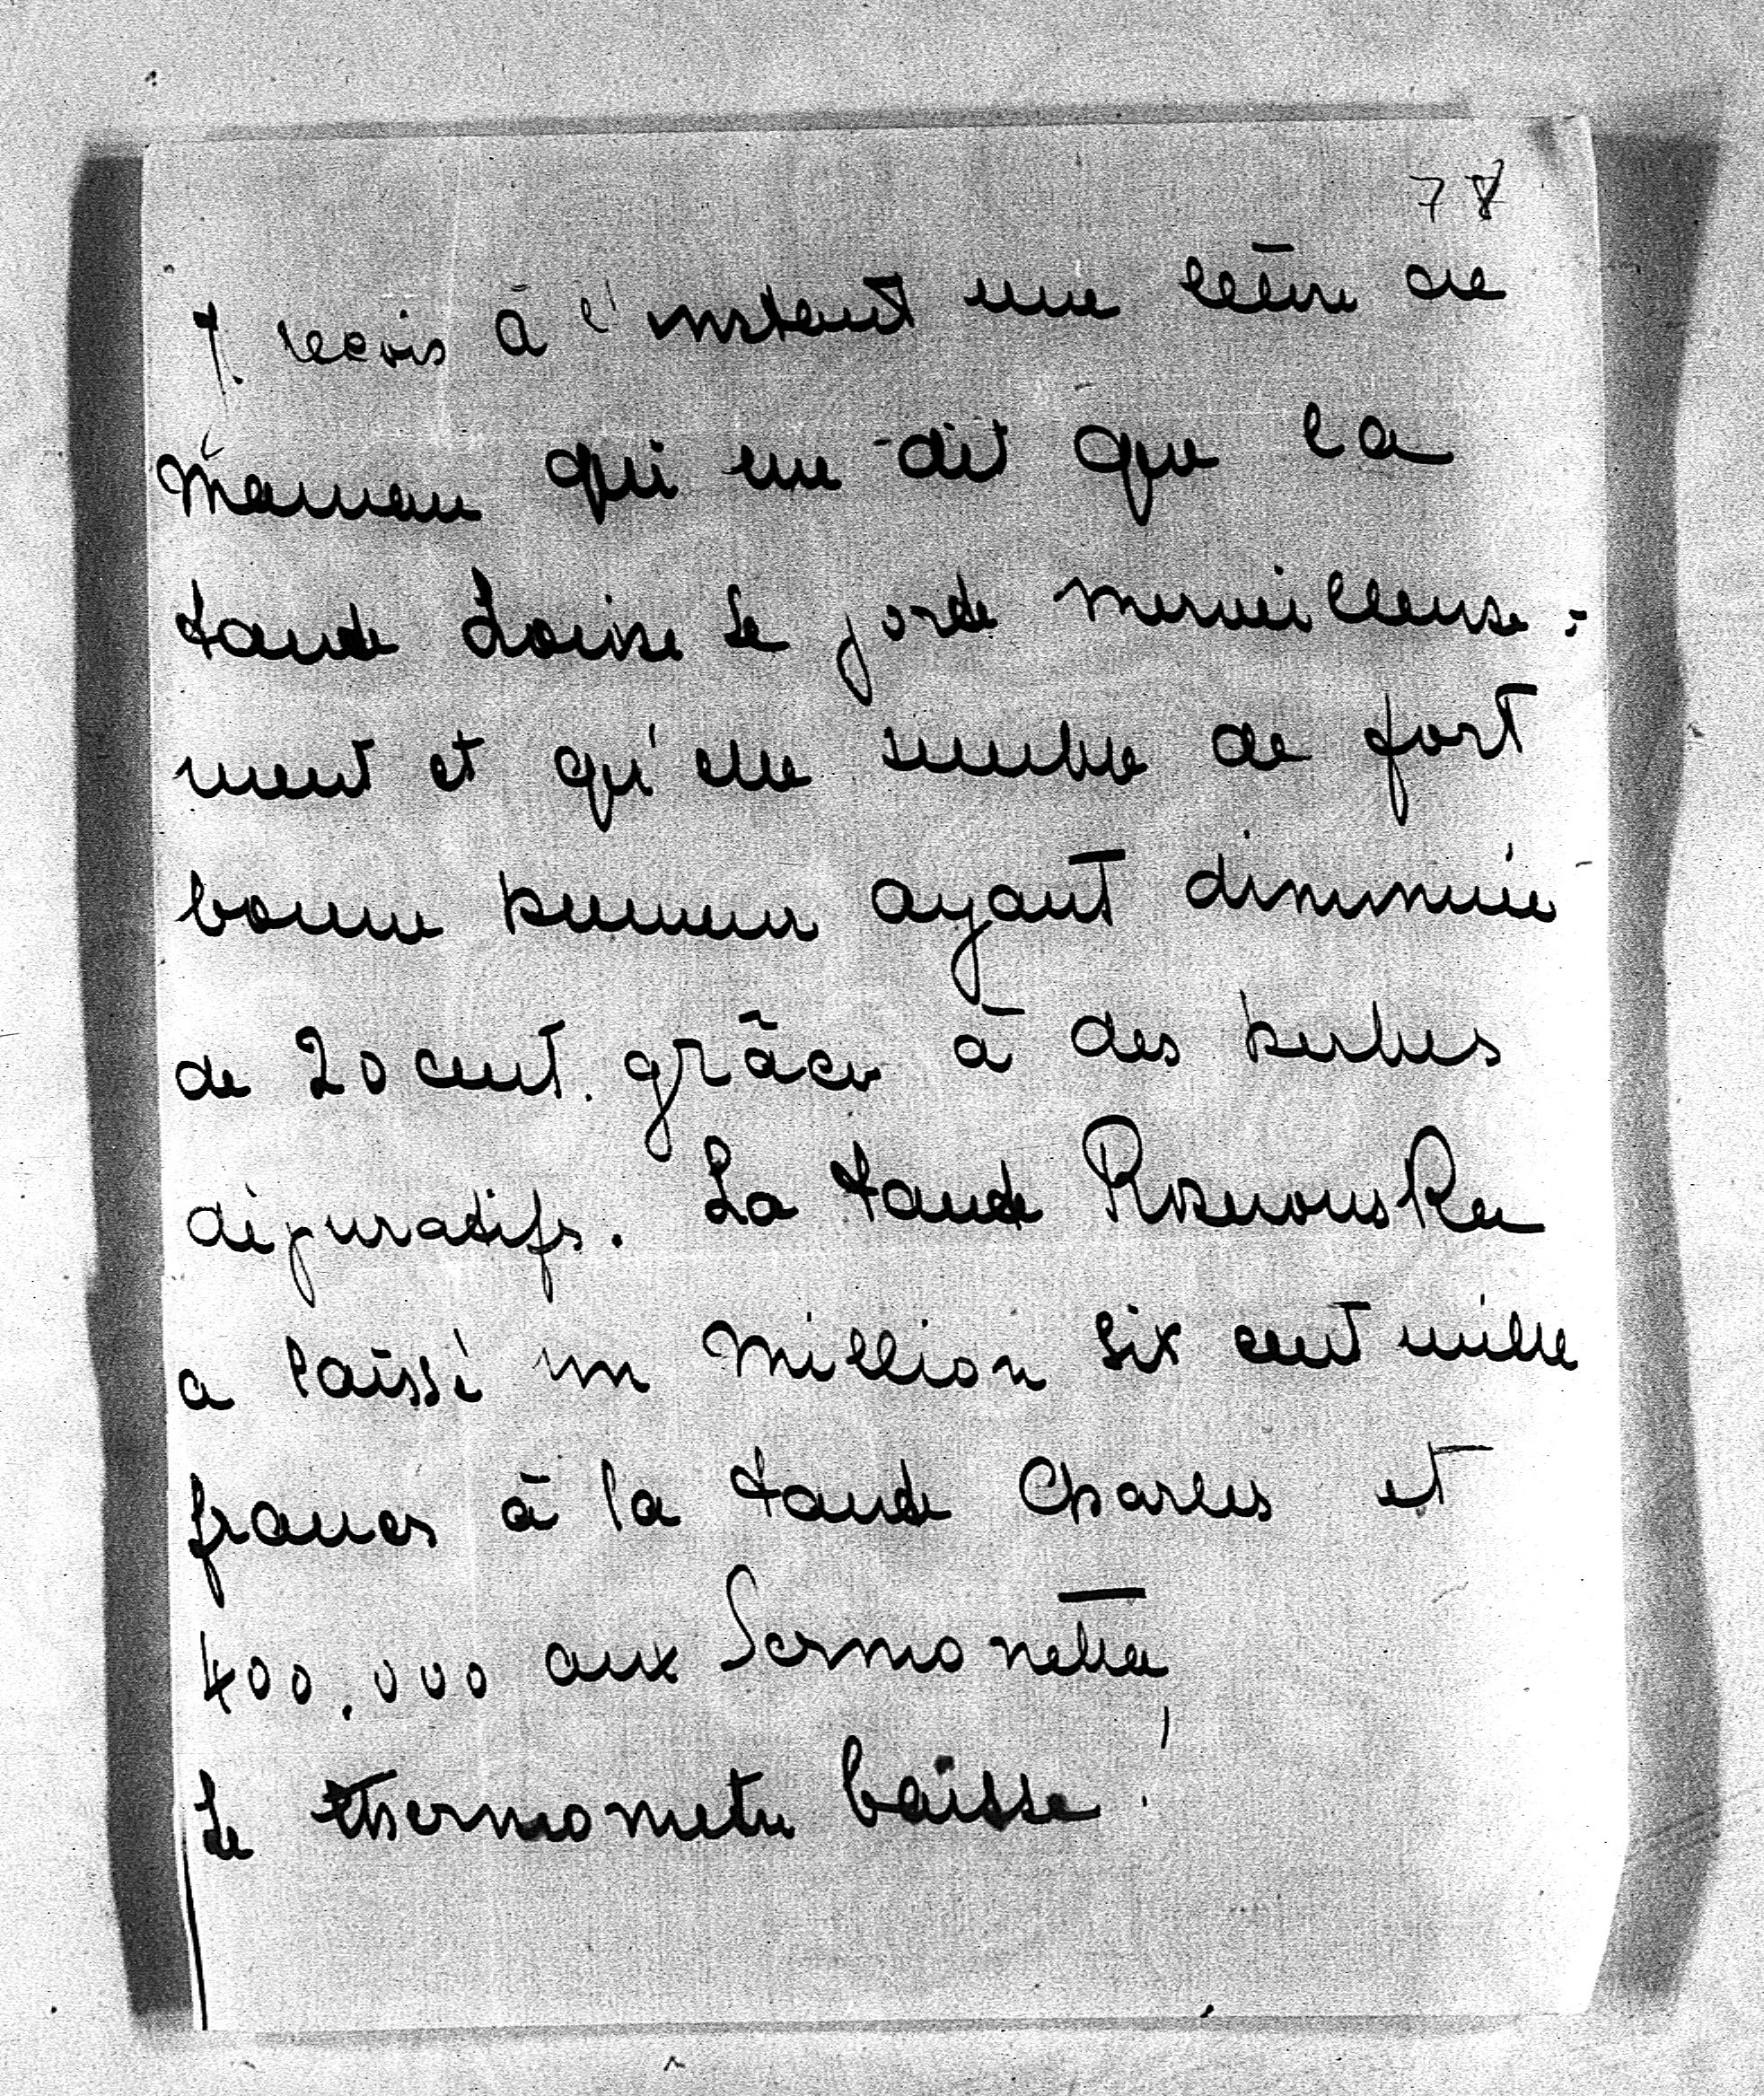 77
J. reçois à l'instant une lettre de
Maman qui me dit que la
tante Louise se porte merveilleuse-
ment et qu'elle semble de fort
bonne humeur ayant diminuée
de 20 cent. grâce à des herbes
dépuratifs. La tante Rosnowska
a laissé un million six cent mille
francs à la tante Charles et
400.000 aux Sermonetta,
Le thermometre baisse!